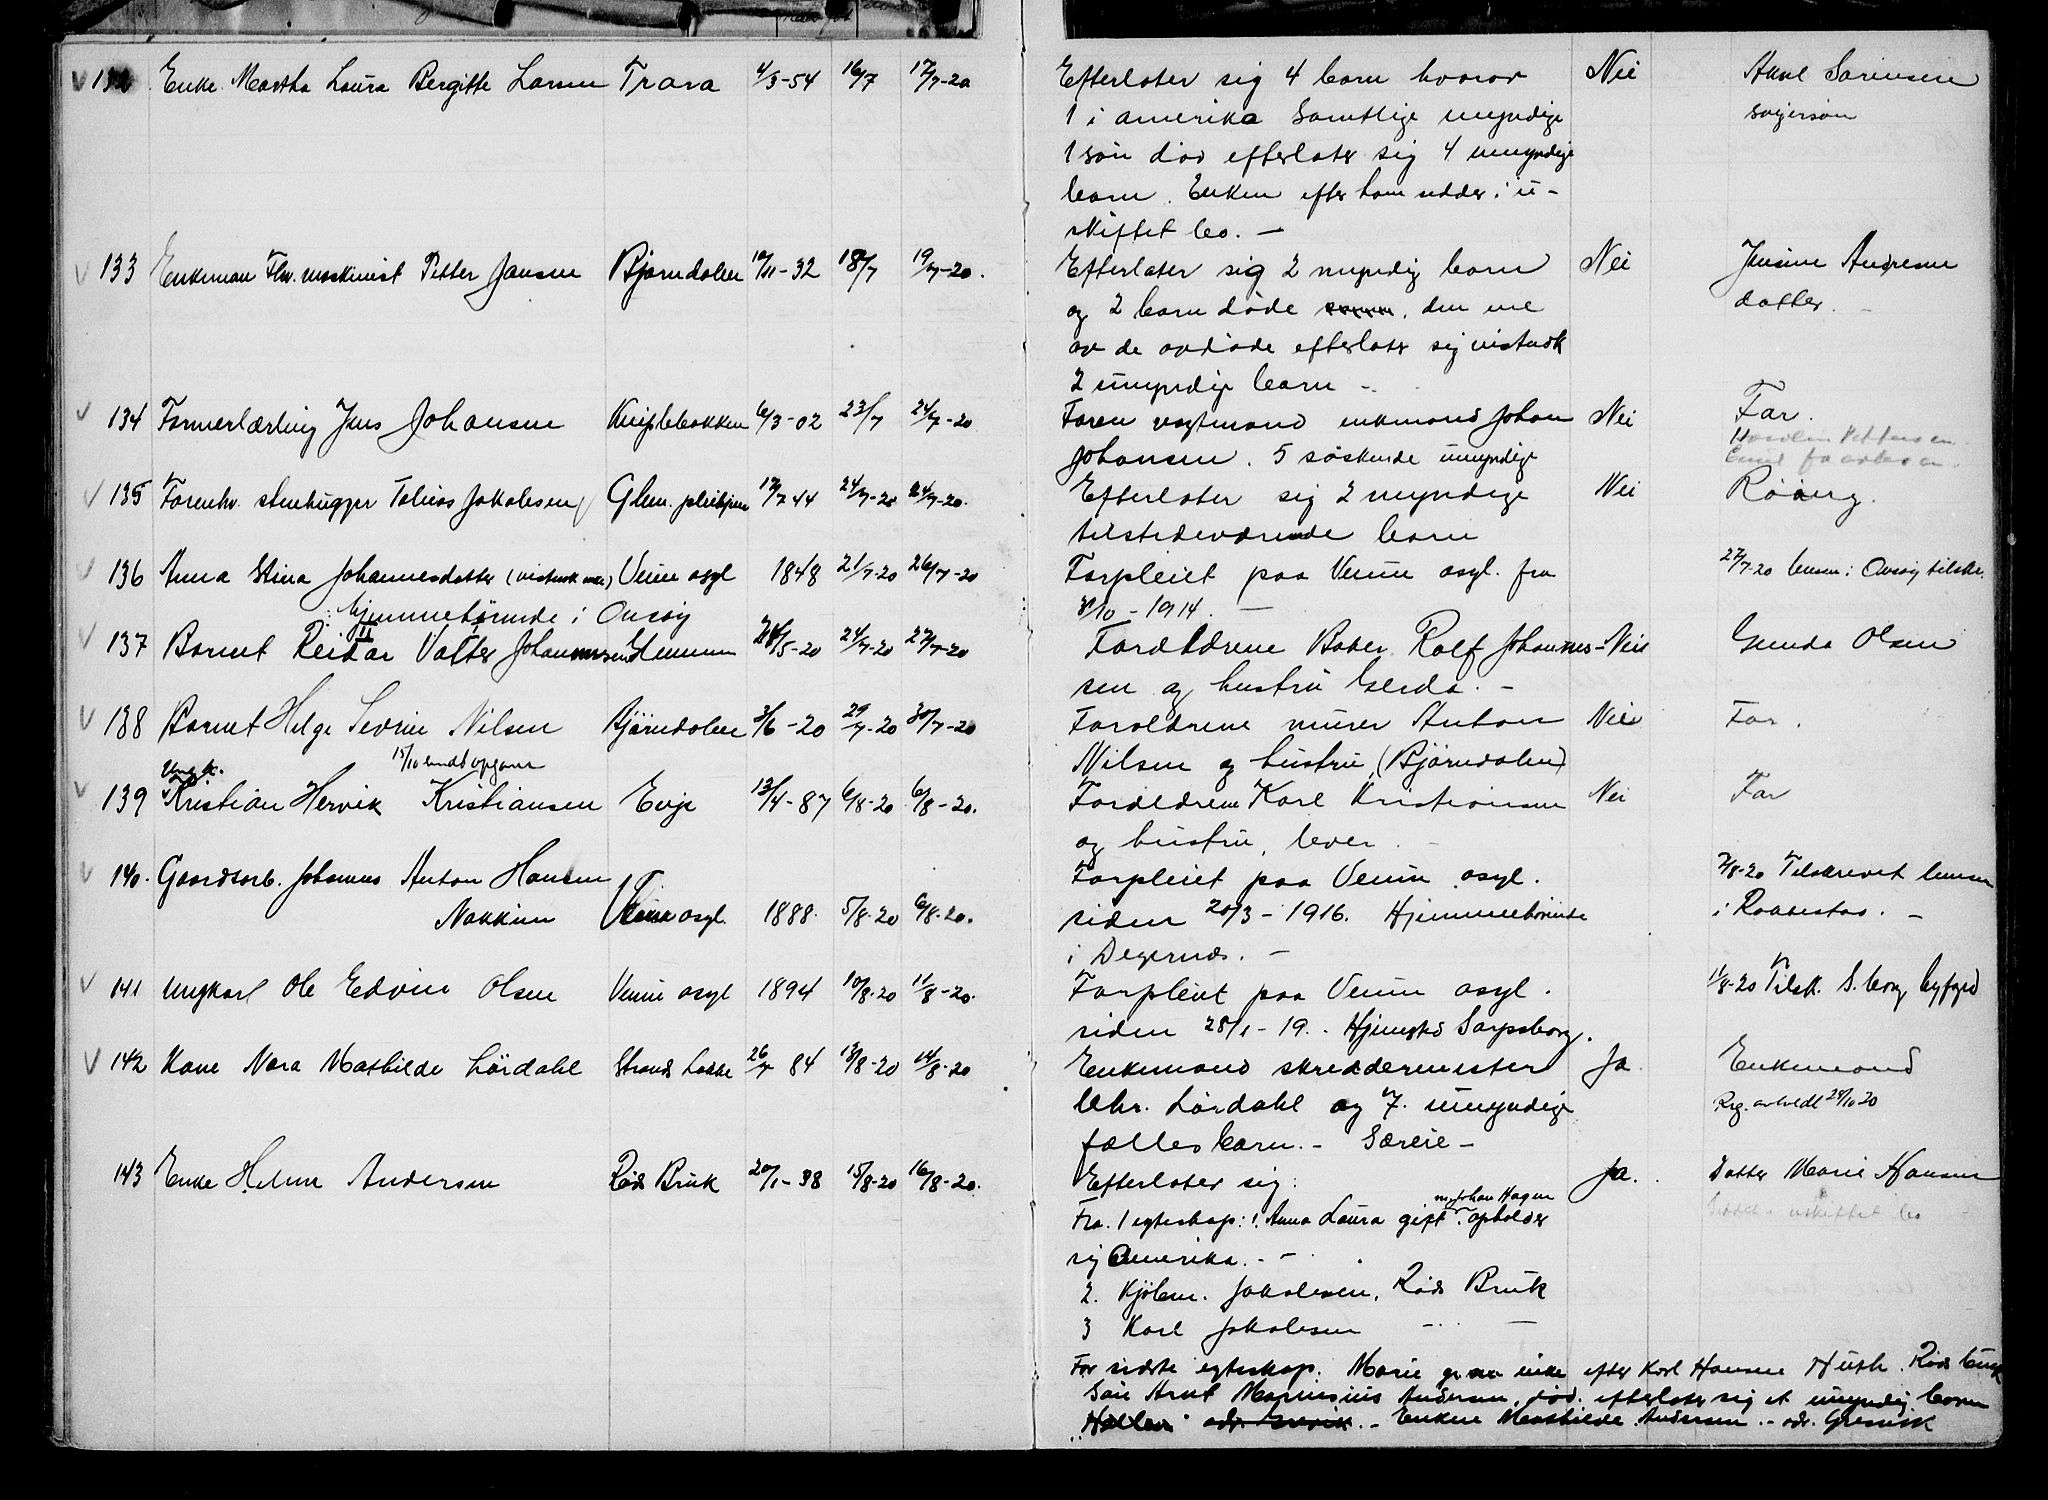 132 Enke Martha Laura Bergitte Larsen Trara 4/3-54 16/7 17/7-20 Efterlater sig 4 barn hvorav Nei Aksel Sørensen
1 i amerika Samtlige myndige svigersøn
1 søn død efterlater sig 4 umyndige
barn. Enken efter ham sidder i u-
skiftet bo. —
133 Enkeman Fhv. maskinist Petter Jansen Bjørndalen 10/11-32 18/7 19/7-20. Efterlater sig 2 myndig barn Nei Jensine Andresen
og 2 barn døde den ene datter.
av de avdøde efterlater sig vistnok
2 umyndige barn -
134 Formerlærling Jens Johansen Kniplebakken 6/3-02 22/7 24/7-20 Faren vagtmand enkemand Johan Nei Far.
Johansen. 5 søskende umyndige
135 Forenhv. stenhugger Tobias Jakobsen Glem. pleiehjem 17/7 44 24/7-20 24/7-20. Efterlater sig 2 myndige Nei Røberg.
tilstedeværende barn
136 Anna Stina Johannesdatter (vistnok enke) Veum asyl 1848 21/7-20 26/7-20 Forpleiet paa Veum asyl. fra 27/7-20 lensm. i Onsøy tilskr.
hjemmehørende i Onsøy 8/10-1914. —
137 Barnet Reidar Valter Johannessen Lemmen 28/5-20 24/7-20 27/7-20 Forældrene Baker Rolf Johannes- Nei Gunda Olsen
sen og hustru Gerda. -
138 Barnet Helge Sevrin Nilsen Bjørndalen 3/6-20 29/7-20 30/7-20 Forældrene murer Anton Nei Far.
15/10 sendt opgave Nilsen og hustru (Bjørndalen)
Ungk.
139 Kristian Hervik Kristiansen Evje 12/4-87 6/8-20 6/8-20. Forældrene Karl Kristiansen Nei Far
og hustru, lever.
140. Gaardsarb. Johannes Anton Hansen Forpleiet paa Veum asyl. 7/8-20 Tilskrevet lensm
Nakkim Veum asyl. 1888. 5/8-20 6/8-20. siden 20/3-1916. Hjemmehørende i Rakkestad. -
i Degernes. -
141 Ungkarl Ole Edvin Olsen Veum asyl 1894 10/8-20 11/8-20. Forpleiet paa Veum asyl. 11/8-20 Tilsk. S.borg byfogd
siden 28/1-19. Hjemsted Sarpsborg.
142 Kone Nora Mathilde Lørdahl Strands bakke 26/7 84 13/8-20 14/8-20 Enkemand skreddermester Ja. Enkemand
Chr. Lørdahl og 7. umyndige Reg. avholdt 28/10 20
fælles barn. - Særeie -
143 Enke Helene Andersen Røds Bruk 20/1-38 15/8-20 16/8-20. Efterlater sig: Ja. Datter Marie Hansen
m. Johan Hagen
Fra. 1 egteskap: 1. Anna Laura gift. opholder Sidder i uskiftet bo
sig Amerika. -
2. Kjølem. Jakobsen, Røds Bruk
3 Karl Jakobsen — —
For sidste egteskap: Marie g. nu enke efter Karl Hansen Huth. Røds bruk
Søn Arnt Marensius Andersen død. efterlater sig et umyndig barn
Enken Mathilde Andersen - adr. Gressvik